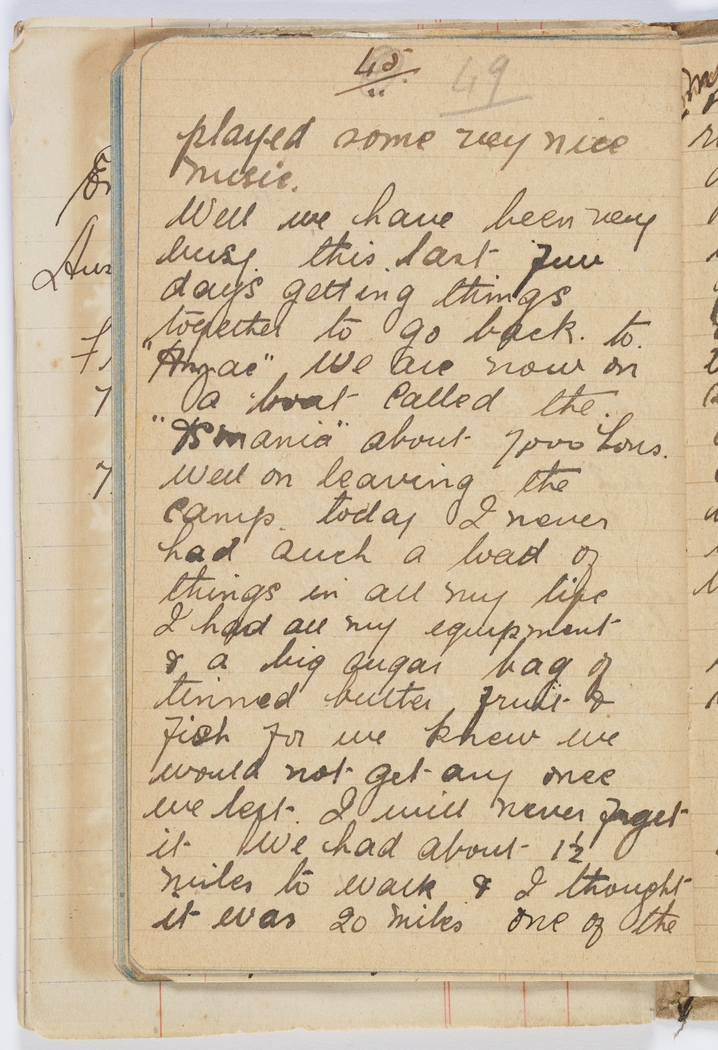 45
49
played some very nice
music.
Well we have been very
busy this last few
days getting things
together to go back to
"Anzac" We are now on
a boat called the
"Osmania" about 7000 tons.
Well on leaving the
camp today I never
had such a load of
things in all my life
I had all my equipment
& a big sugar bag of
tinned butter fruit &
fish for we knew we
would not get any once
we left. I will never forget
it We had about 1½
miles to walk & I thought
it was 20 miles one of the